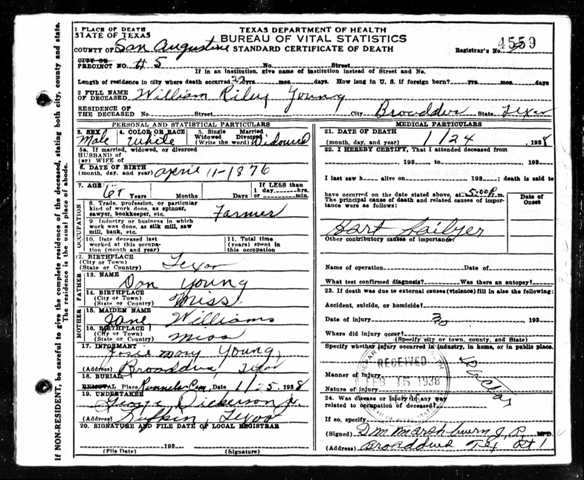 1 PLACE OF DEATH
STATE OF TEXAS
TEXAS DEPARTMENT OF HEALTH
BUREAU OF VITAL STATISTICS
STANDARD CERTIFICATE OF DEATH
4559
COUNTY OF San Augustine
Registrar's No.
CITY OR
PRECINCT NO. #5 No. Street
If in an institution, give name of institution instead of Street and No.
Length of residence in city where death occurred yrs. mos. days. How long in U. S. if foreign born? yrs. mos. days
2 FULL NAME
OF DECEASED William Riley Young
RESIDENCE OF
THE DECEASED No. Street City Broaddus State Texas
PERSONAL AND STATISTICAL PARTICULARS
MEDICAL PARTICULARS
3. SEX Male
4. COLOR OR RACE White
5. Single Married
Widowed Divorced
(Write the word) Widowed
5a. If married, widowed, or divorced
HUSBAND of
(or) WIFE of
6. DATE OF BIRTH
(month, day, and year) april 11-1876
7. AGE 61 Years Months Days
If LESS than
1 day, hrs.
or min.
OCCUPATION
8. Trade, profession, or particular
kind of work done, as spinner,
sawyer, bookkeeper, etc. Farmer
9. Industry or business in which
work was done, as silk mill, saw
mill, bank, etc.
10. Date deceased last
worked at this occupa-
tion (month and year)
11. Total time
(years) spent in
this occupation
12. BIRTHPLACE
(City or Town)
(State or Country) Texas
FATHER
13. NAME Don Young
14. BIRTHPLACE
(City or Town)
(State or Country) Miss
MOTHER
15. MAIDEN NAME Jane Williams
16. BIRTHPLACE
(City or Town)
(State or Country) Miss
17. INFORMANT Mary Young
(Address) Broaddus Texas
18. BURIAL
REMOVAL Place Cem Date 1/25 1938
19. UNDERTAKER Dickerson Jr
(Address) Texas
20. SIGNATURE AND FILE DATE OF LOCAL REGISTRAR
193
(File Date) (Signature)
21. DATE OF DEATH
(month, day, and year) 1/24 1938
22. I HEREBY CERTIFY, That I attended deceased from
193 to 193
I last saw h alive on 193 ; death is said to
have occurred on the date stated above, at 5:00 P.m.
The principal cause of death and related causes of importance
were as follows:
Date of
Onset
Other contributory causes of importance:
Name of operation Date of
What test confirmed diagnosis? Was there an autopsy?
23. If death was due to external causes (violence) fill in also the following:
Accident, suicide, or homicide?
Date of injury 193
Where did injury occur?
(Specify city or town, county, and State)
Specify whether injury occurred in industry, in home, or in public place.
Manner of injury
Nature of injury
RECEIVED
FEB 15 1938
24. Was disease or injury in any way
related to occupation of deceased?
If so, specify
(Signed) J. P. MPD.
(Address) Broaddus Tex Rt 1
IF NON-RESIDENT, be careful to give the complete residence of the deceased, stating both city, county and state.
The residence is the usual place of abode.